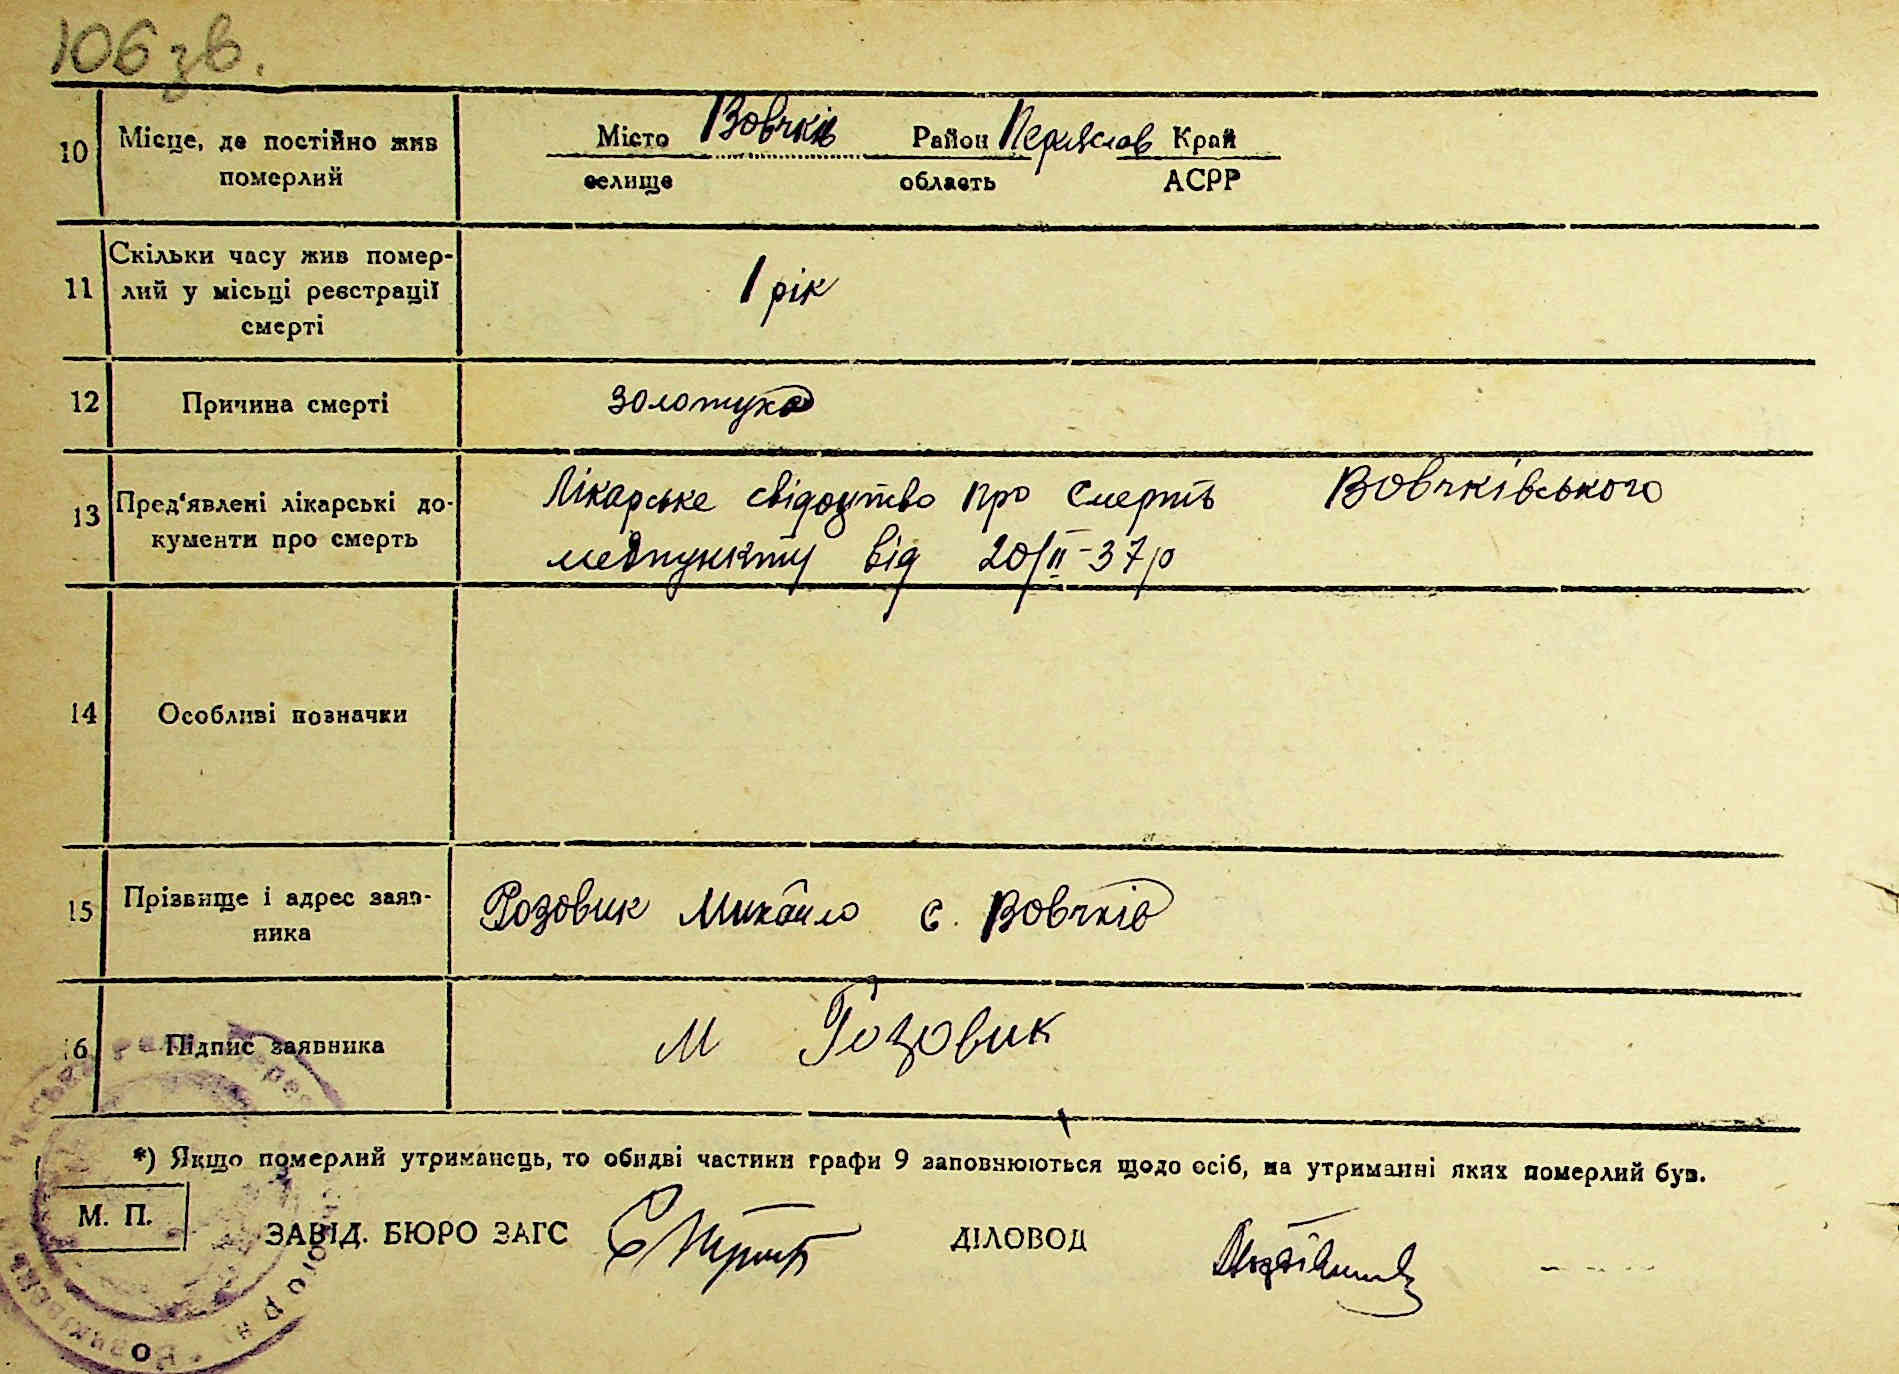 106 зв.
10 Місце, де постійно жив
померлий
Місто Вовчків Район Переяслав Край
селище область АСРР
11 Скільки часу жив помер-
лий у місьці реєстрації
смерті
1 рік
12 Причина смерті золотуха
13 Пред'явлені лікарські до-
кументи про смерть
Лікарське свідоцтво про смерть Вовчківського
медпункту від 20/II-37р
14 Особливі позначки
15 Прізвище і адрес заяв-
ника
Розовик Михайло с. Вовчків
16 Підпис заявника М Розовик
*) Якщо померлий утриманець, то обидві частини графи 9 заповнюються щодо осіб, на утриманні яких померлий був.
М. П.
ЗАВІД. БЮРО ЗАГС ДІЛОВОД